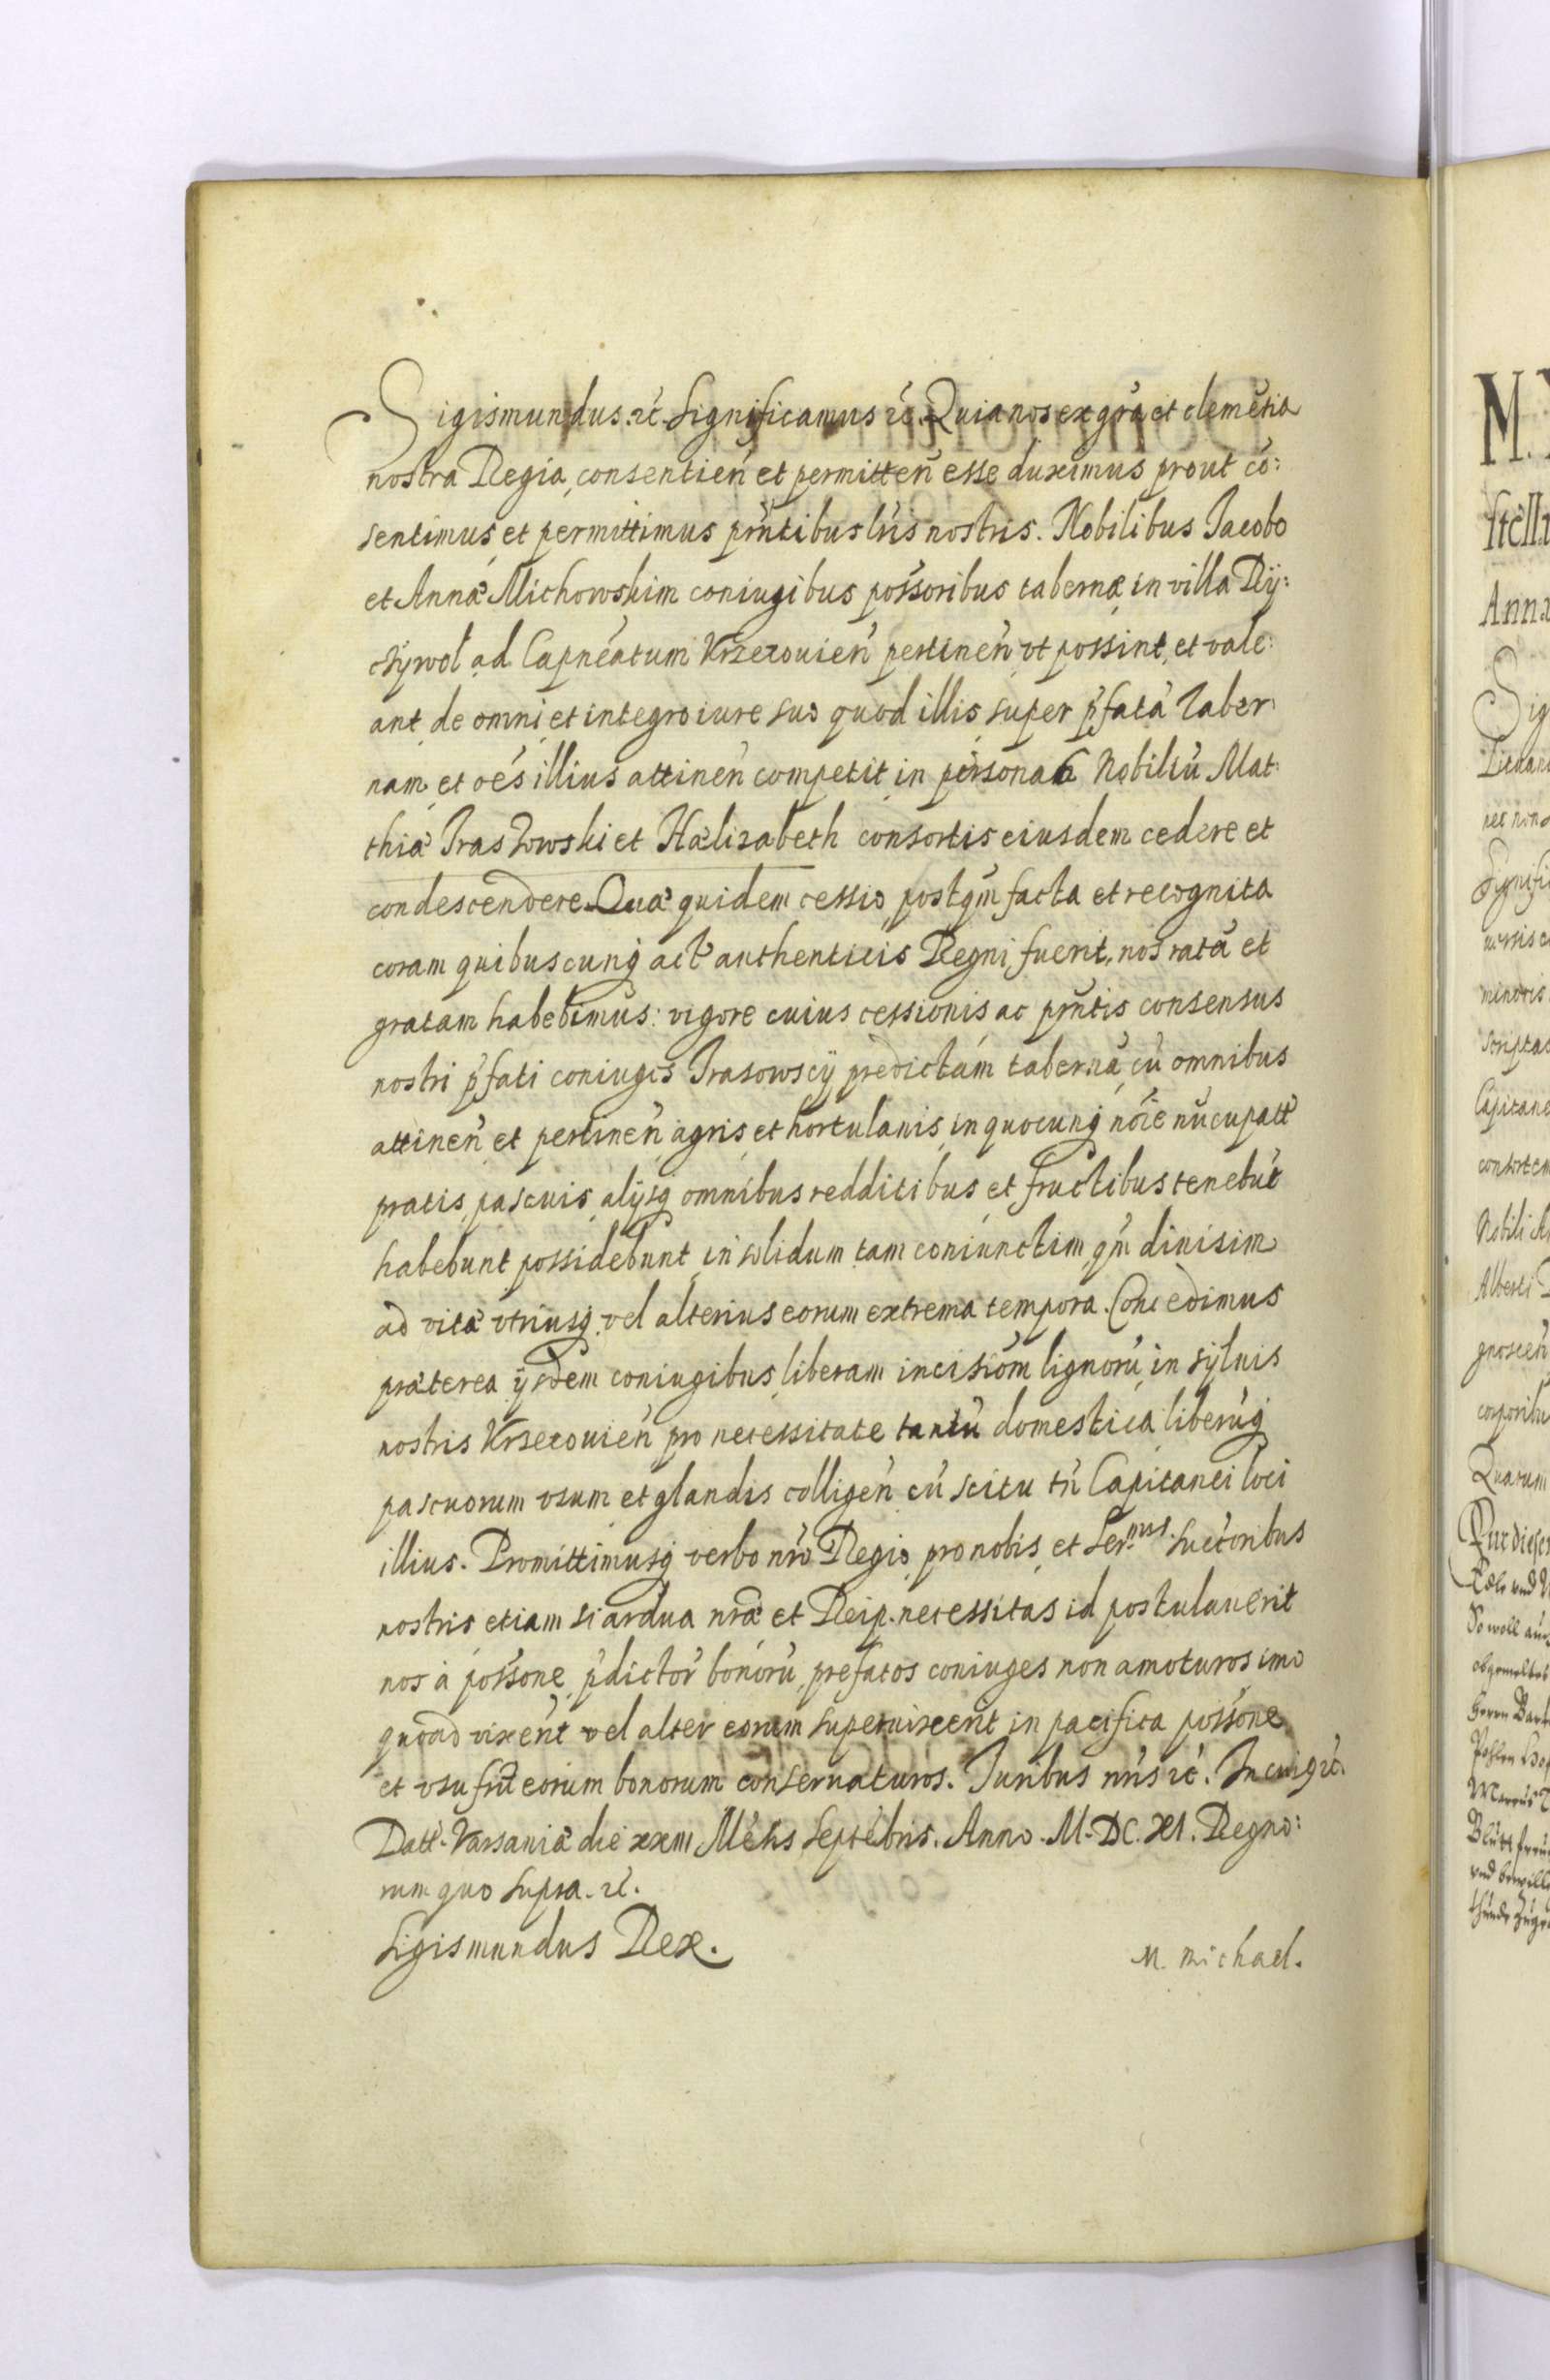 Sigismundus. ć. Significamus ć. Quia nos ex gr̃a et clemẽtia
nostra Regia, consentień et permitteñ esse duximus prout cõ:
sentimus et permittimus pr̃ntibus lr̃is nostris. Nobilibus Jacobo
et Annæ Michowskim coniugibus possoribus tabernæ in villa Ry:
czywol ad Capneatum Krzezouień pertineń vt possint et vale:
ant de omni et integro iure suo quod illis super p̃fatã Taber
nam et oẽs illius attineń competit in personas Nobiliũ Mat:
thiæ Jraszowski et Hælizabeth consortis eiusdem cedere et
condescendere. Quæ quidem cessio postqm̃ facta et recognita
coram quibuscunq act̃ authenticis Regni fuerit, nos ratã et
gratam habebimus: vigore cuius cessionis ac pr̃ntis consensus
nostri p̃fati coniuges Jrasowscÿ predictam tabernã cũ omnibus
attineń et pertineń agris et hortulanis in quocunq nõie nũcupatt̃
pratis pascuis alÿsq omnibus redditibus et fructibus tenebũt
habebunt possidebunt in solidum tam coniunctim qm̃ diuisim
ad vitæ vtriusq vel alterius eorum extrema tempora. Concedimus
præterea ÿsdem coniugibus liberam incisiom̃ lignorũ in syluis
nostris Krzezouień pro necessitate tantũ domestica liberũq
pascuorum vsum et glandis colligeń cũ scitu tñ Capitanei loci
illius. Promittimusq verbo nr̃o Regio pro nobis et Ser.mis Suctoribus
nostris etiam si ardua nr̃a et Reip. necessitas id postulauerit
nos à possone p̃dictor̃ bonorũ, prefatos coniuges non amoturos imo
quoad vixerit̃ vel alter eorum superuixerit in pacifica possone
et vsufrũ eorum bonorum conseruaturos. Juribus nr̃is ć. In cuiq ć.
Datt. Varsauiæ die xxiii Mẽsis Septẽbris. Anno. M. DC. XI. Regno:
rum quo supra. ć.
Sigismundus Rex.
M. Michael.